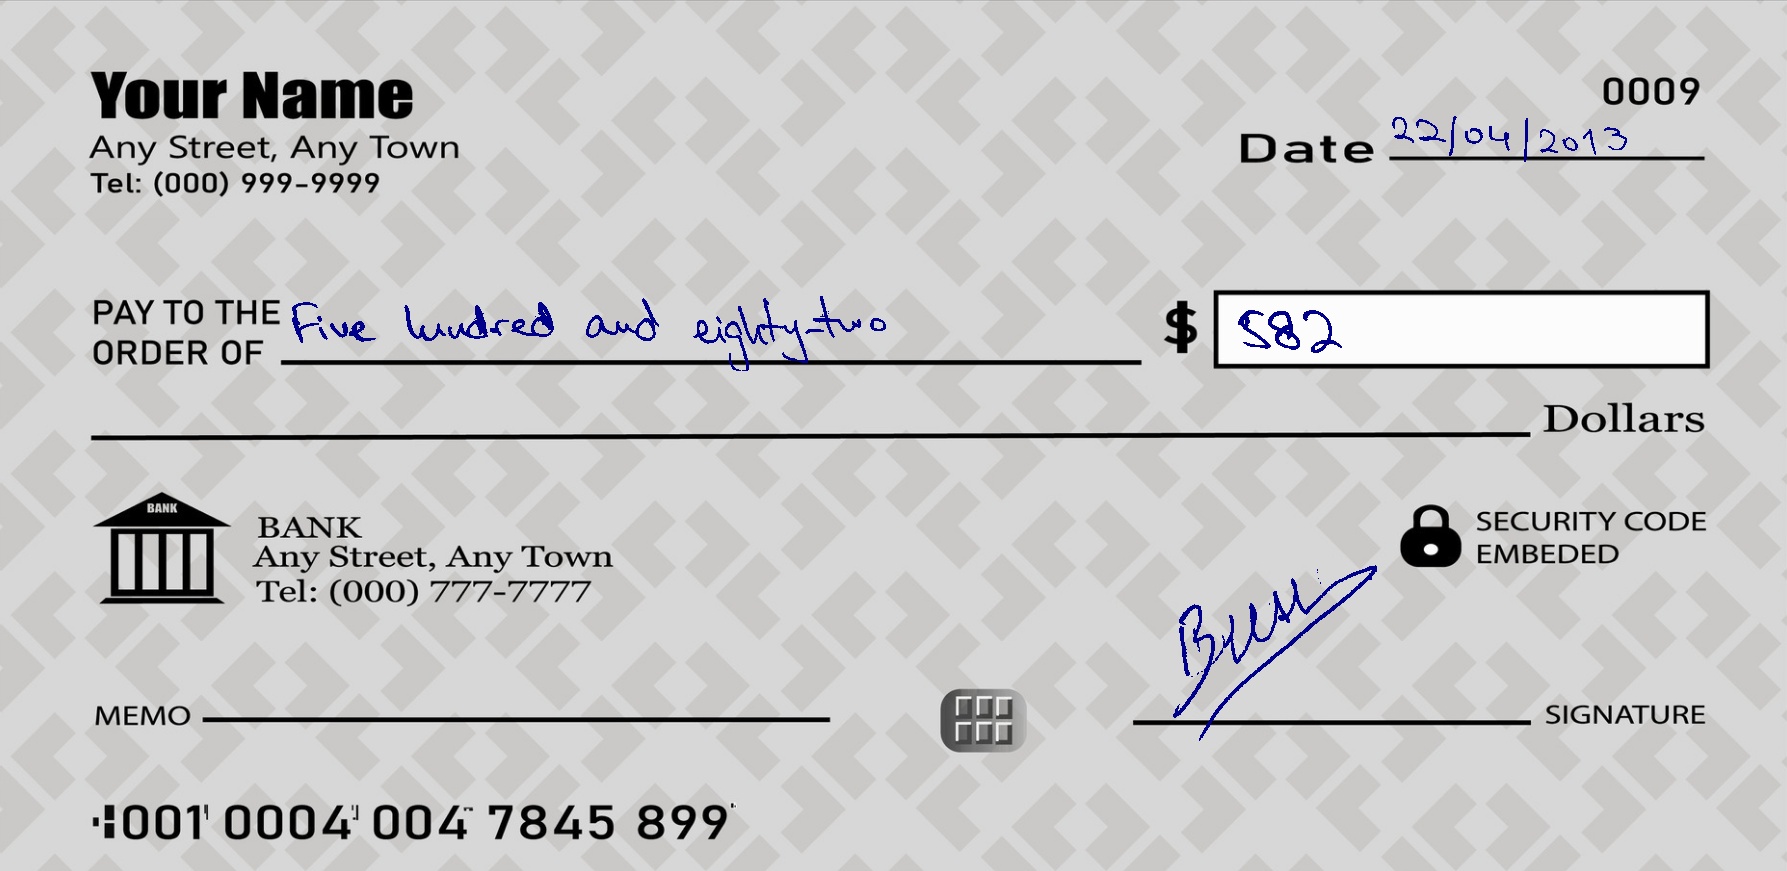 Your Name
0009
Any Street, Any Town
Date 22/04/2013
Tel: (000) 999-9999
PAY TO THE
ORDER OF Five hundred and eighty-two $ 582
Dollars
BANK
BANK
Any Street, Any Town
Tel: (000) 777-7777
SECURITY CODE
EMBEDED
MEMO
SIGNATURE
001 0004 004 7845 899